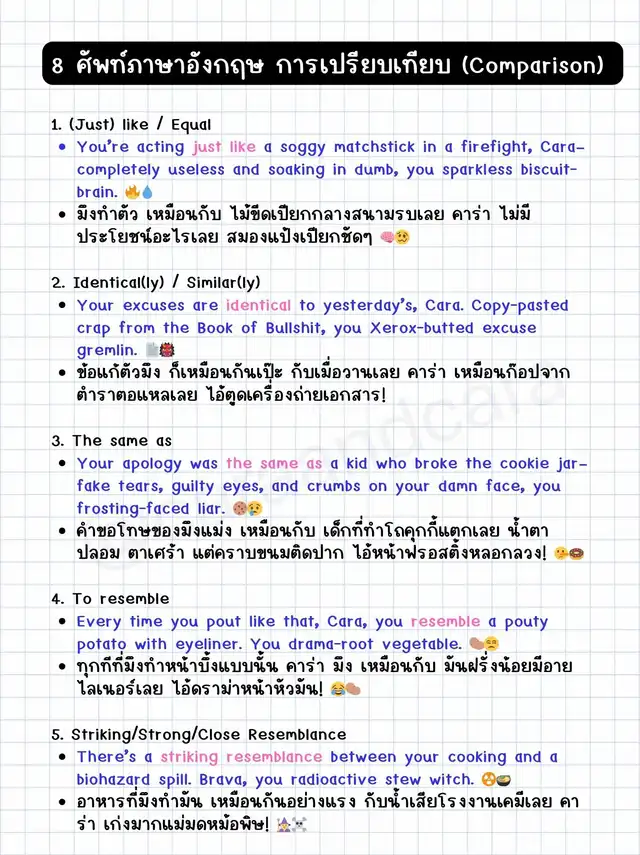 8 ศัพท์ภาษาอังกฤษ การเปรียบเทียบ (Comparison)
1. (Just) like / Equal
• You're acting just like a soggy matchstick in a firefight, Cara–
completely useless and soaking in dumb, you sparkless biscuit-
brain. 🔥💧
• มึงทำตัว เหมือนกับ ไม้ขีดเปียกกลางสนามรบเลย คาร่า ไม่มี
ประโยชน์อะไรเลย สมองแป้งเปียกชัดๆ 🧠🥴
2. Identical(ly) / Similar(ly)
• Your excuses are identical to yesterday's, Cara. Copy-pasted
crap from the Book of Bullshit, you Xerox-butted excuse
gremlin. 📄👹
• ข้อแก้ตัวมึง ก็เหมือนกันเป๊ะ กับเมื่อวานเลย คาร่า เหมือนก๊อปจาก
ตำราตอแหลเลย ไอ้ตูดเครื่องถ่ายเอกสาร!
3. The same as
• Your apology was the same as a kid who broke the cookie jar–
fake tears, guilty eyes, and crumbs on your damn face, you
frosting-faced liar. 🍪😢
• คำขอโทษของมึงแม่ง เหมือนกับ เด็กที่ทำโถคุกกี้แตกเลย น้ำตา
ปลอม ตาเศร้า แต่คราบขนมติดปาก ไอ้หน้าฟรอสติ้งหลอกลวง! 🤥🍩
4. To resemble
• Every time you pout like that, Cara, you resemble a pouty
potato with eyeliner. You drama-root vegetable. 🥔😒
• ทุกทีที่มึงทำหน้าบึ้งแบบนั้น คาร่า มึง เหมือนกับ มันฝรั่งน้อยมีอาย
ไลเนอร์เลย ไอ้ดราม่าหน้าหัวมัน! 😂🥔
5. Striking/Strong/Close Resemblance
• There's a striking resemblance between your cooking and a
biohazard spill. Brava, you radioactive stew witch. ☢️🍲
• อาหารที่มึงทำมัน เหมือนกันอย่างแรง กับน้ำเสียโรงงานเคมีเลย คา
ร่า เก่งมากแม่มดหม้อพิษ! 🧙‍♀️☠️